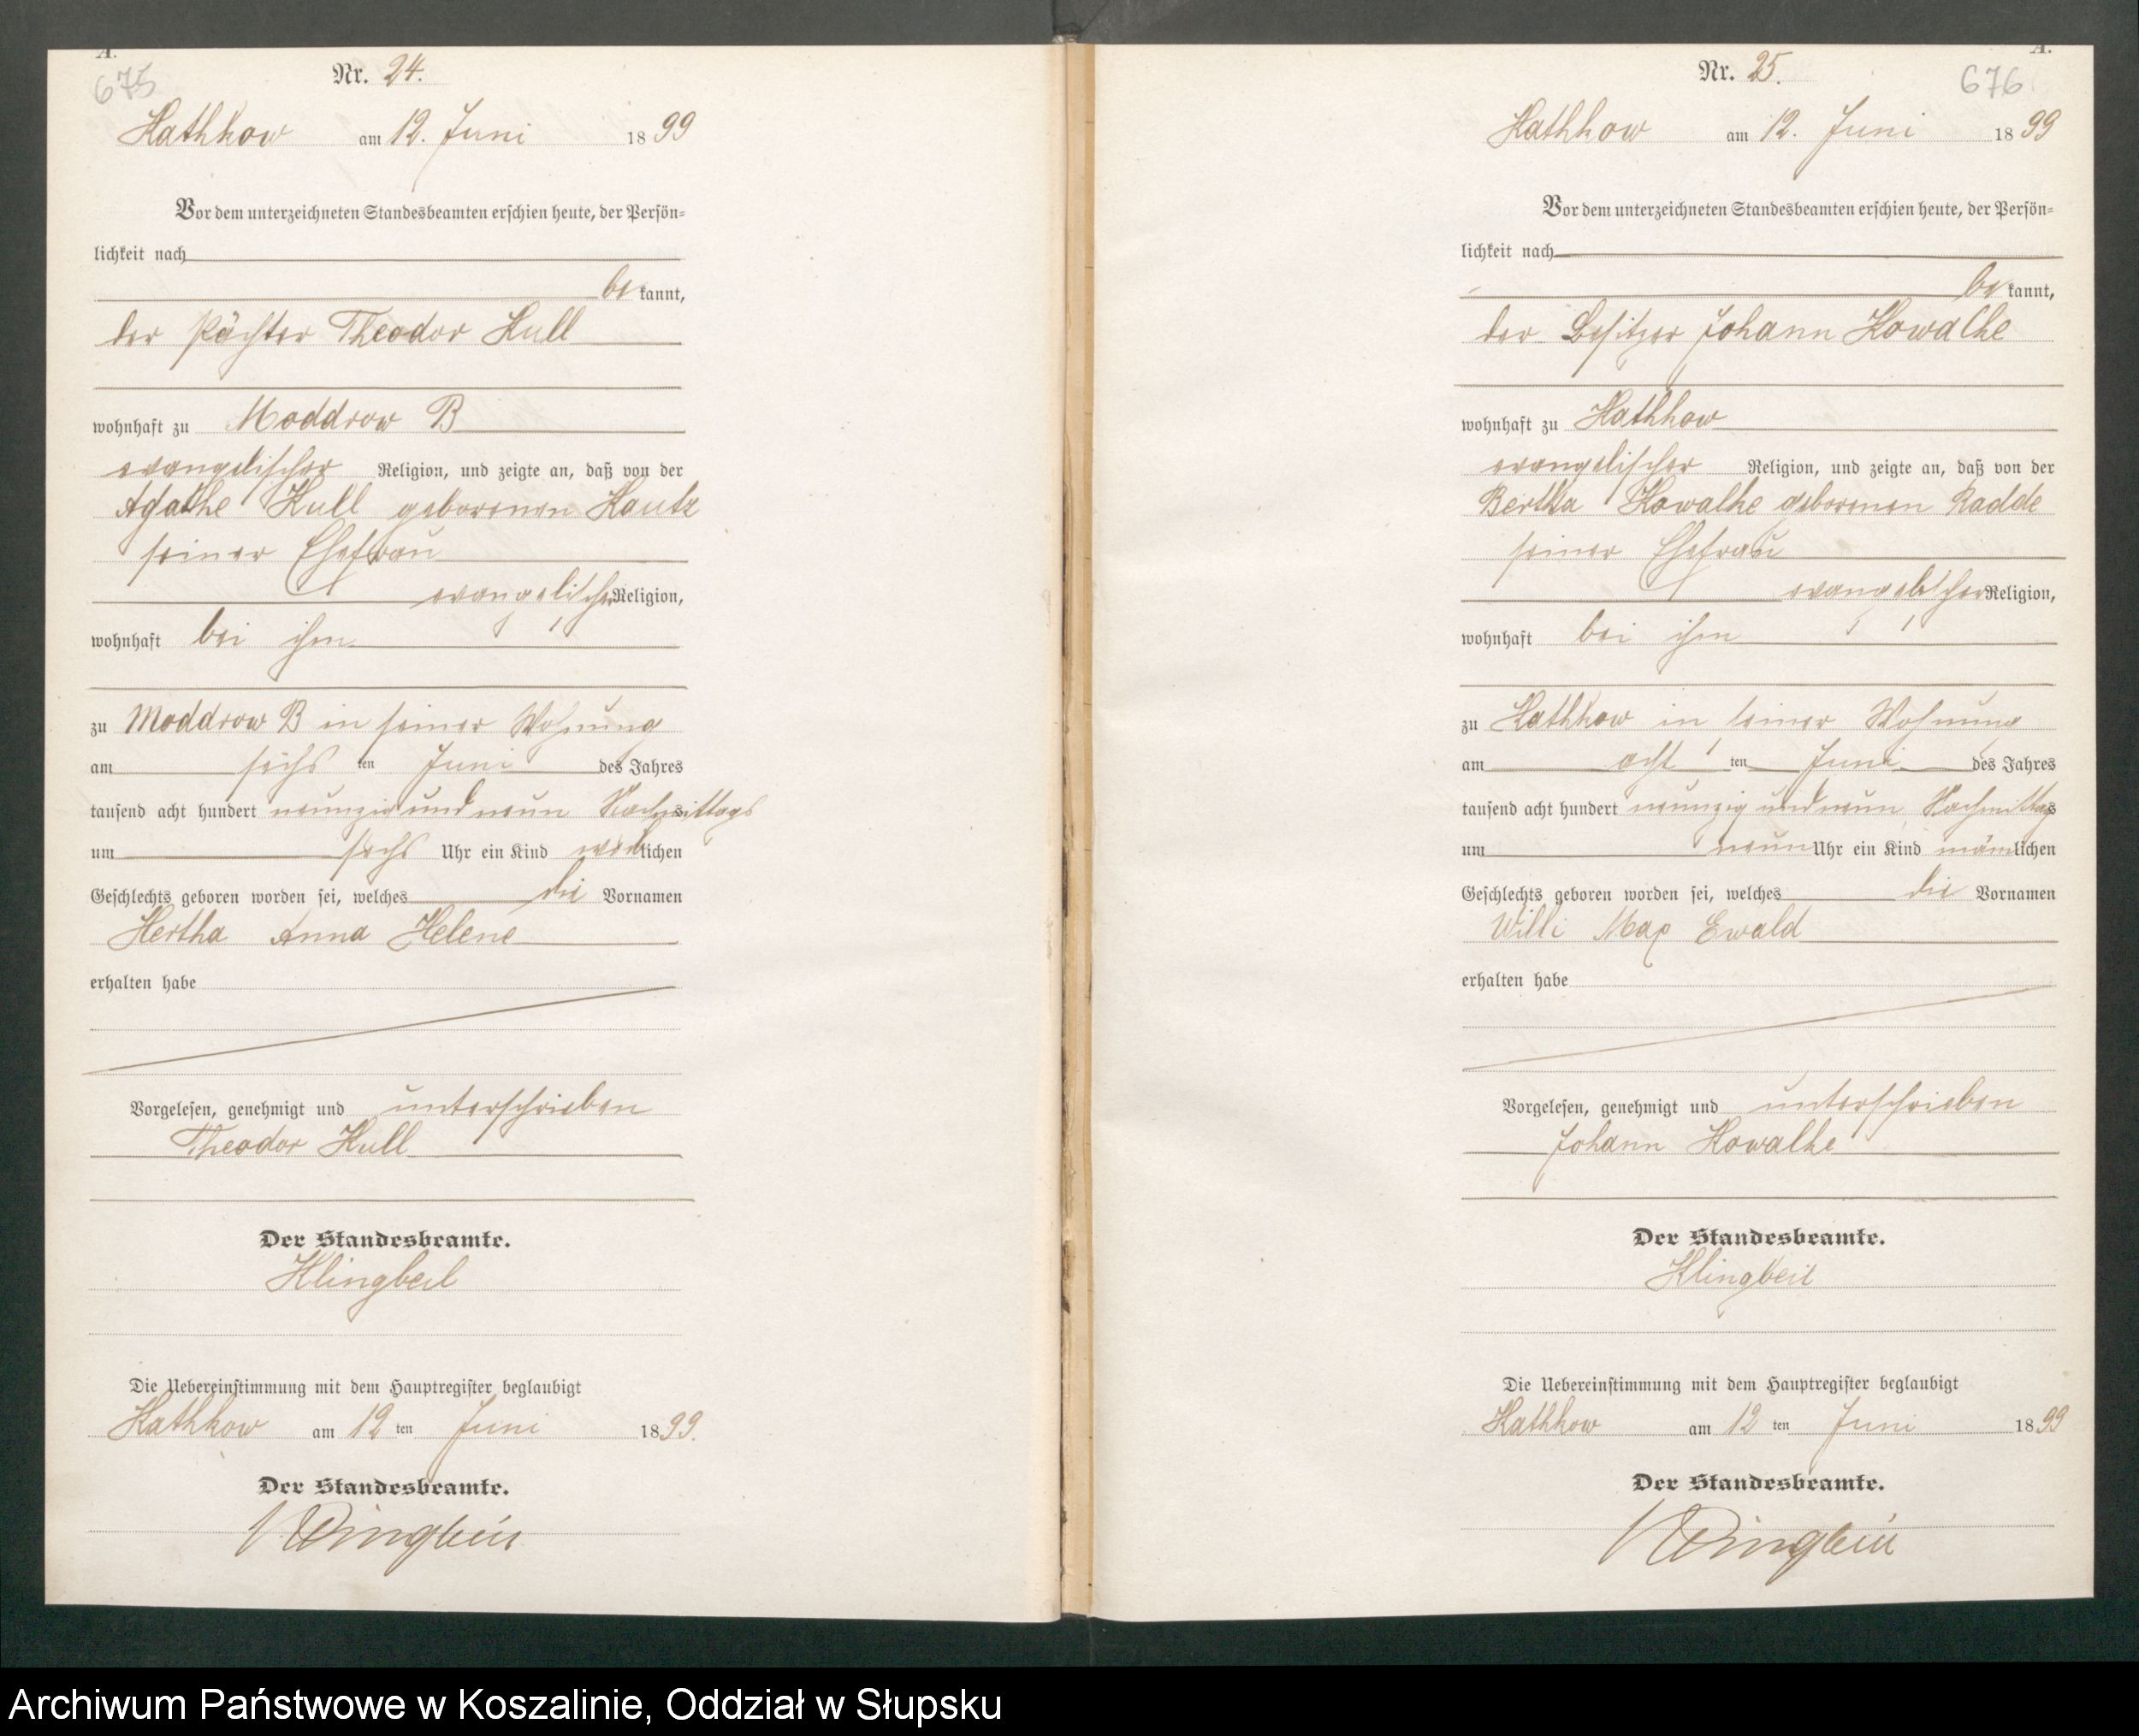 A.
675
Nr. 24.
Kathkow am 12. Juni 1899
Vor dem unterzeichneten Standesbeamten erschien heute, der Persön=
lichkeit nach
be kannt,
der Pächter Theodor Kull
wohnhaft zu Moddrow B
evangelischer Religion, und zeigte an, daß von der
Agathe Kull geborenen Kautz
seiner Ehefrau
evangelischer Religion,
wohnhaft bei ihm
zu Moddrow B in seiner Wohnung
am sechs ten Juni des Jahres
tausend acht hundert neunzig und neun Nachmittags
um sechs Uhr ein Kind weiblichen
Geschlechts geboren worden sei, welches die Vornamen
Hertha Anna Helene
erhalten habe
Vorgelesen, genehmigt und unterschrieben
Theodor Kull
Der Standesbeamte.
Klingbeil
Die Uebereinstimmung mit dem Hauptregister beglaubigt
Kathkow am 12 ten Juni 1899.
Der Standesbeamte.
Klingbeil
A.
676
Nr. 25.
Kathkow am 12. Juni 1899
Vor dem unterzeichneten Standesbeamten erschien heute, der Persön=
lichkeit nach
be kannt,
der Besitzer Johann Kowalke
wohnhaft zu Kathkow
evangelischer Religion, und zeigte an, daß von der
Bertha Kowalke geborenen Radde
seiner Ehefrau
evangelischer Religion,
wohnhaft bei ihm
zu Kathkow in seiner Wohnung
am acht ten Juni des Jahres
tausend acht hundert neunzig und neun Nachmittags
um neun Uhr ein Kind männlichen
Geschlechts geboren worden sei, welches die Vornamen
Willi Max Ewald
erhalten habe
Vorgelesen, genehmigt und unterschrieben
Johann Kowalke
Der Standesbeamte.
Klingbeil
Die Uebereinstimmung mit dem Hauptregister beglaubigt
Kathkow am 12 ten Juni 1899
Der Standesbeamte.
Klingbeil
Archiwum Państwowe w Koszalinie, Oddział w Słupsku